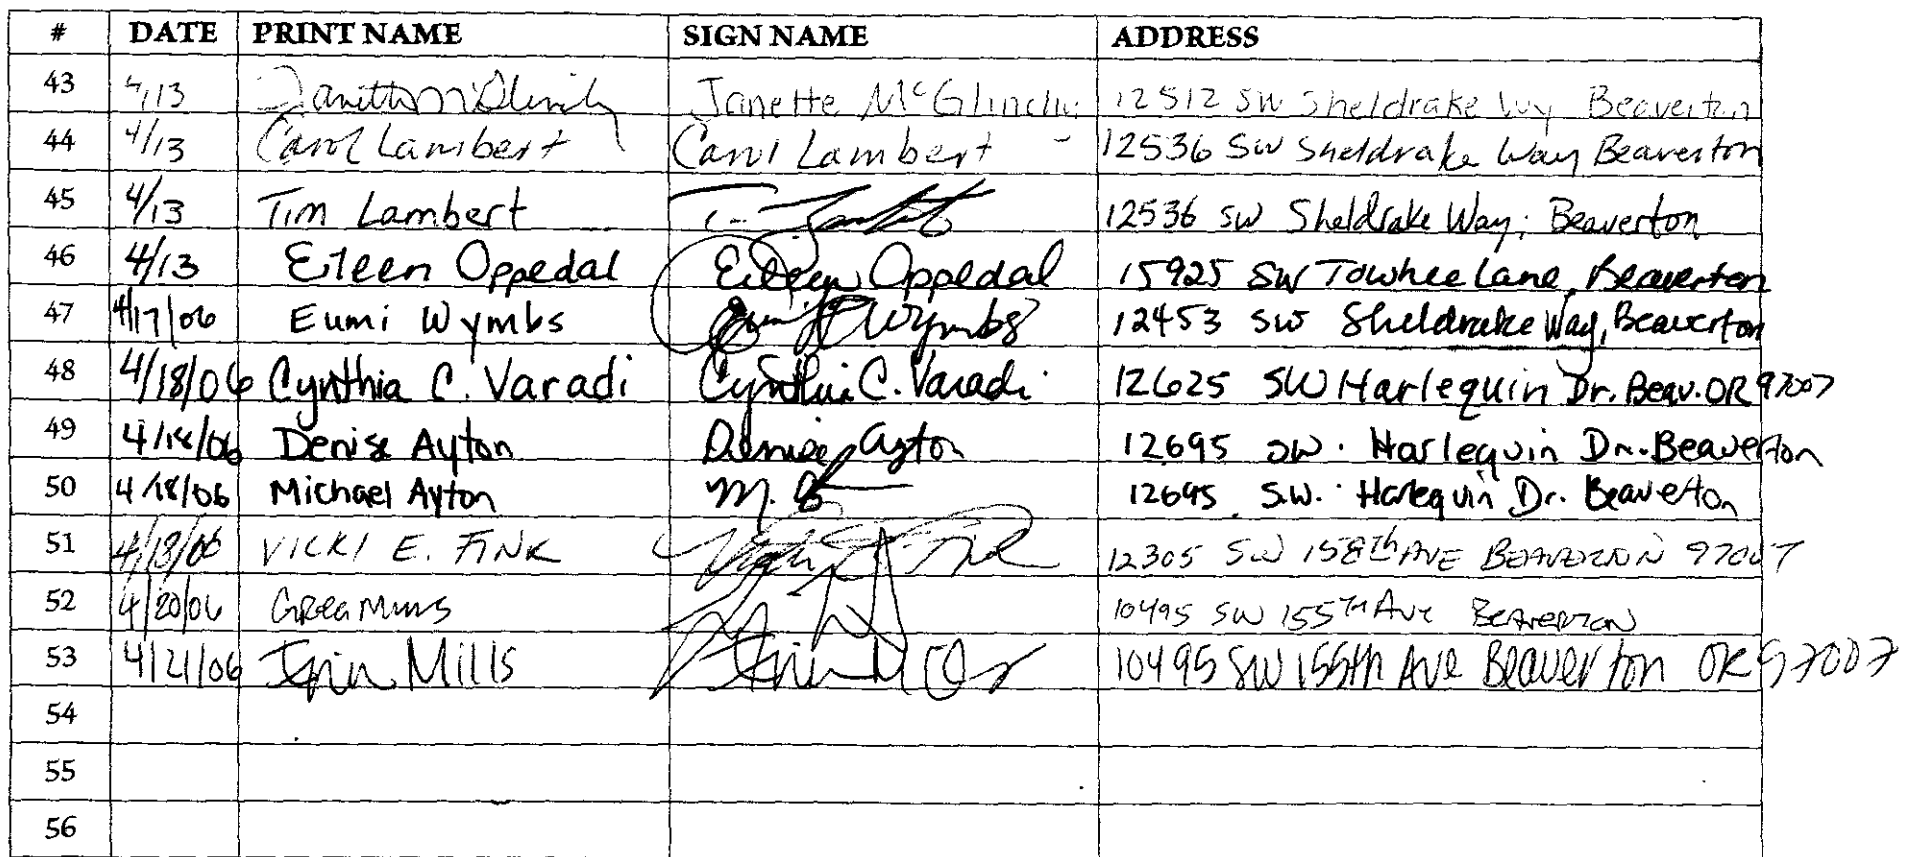 # DATE PRINT NAME SIGN NAME ADDRESS
43 4/13 Janette McGlinchy Janette McGlinchy 12512 SW Sheldrake Wy Beaverton
44 4/13 Carol Lambert Carol Lambert 12536 SW Sheldrake Way Beaverton
45 4/13 Tim Lambert T Lambert 12536 SW Sheldrake Way, Beaverton
46 4/13 Eileen Oppedal Eileen Oppedal 15925 SW Towhee Lane, Beaverton
47 4/17/06 Eumi Wymbs Eumi Wymbs 12453 SW Sheldrake Way, Beaverton
48 4/18/06 Cynthia C. Varadi Cynthia C. Varadi 12625 SW Harlequin Dr. Beav. OR 97007
49 4/18/06 Denise Ayton Denise Ayton 12695 SW. Harlequin Dr. Beaverton
50 4/18/06 Michael Ayton M. 12695 S.W. Harlequin Dr. Beaverton
51 4/18/06 VICKI E. FINK Vicki E. Fink 12305 SW 158th AVE BEAVERTON 97007
52 4/20/06 Greg Mills 10495 SW 155TH Ave BEAVERTON
53 4/21/06 Erin Mills Erin 10495 SW 155th Ave Beaverton OR 97007
54
55
56